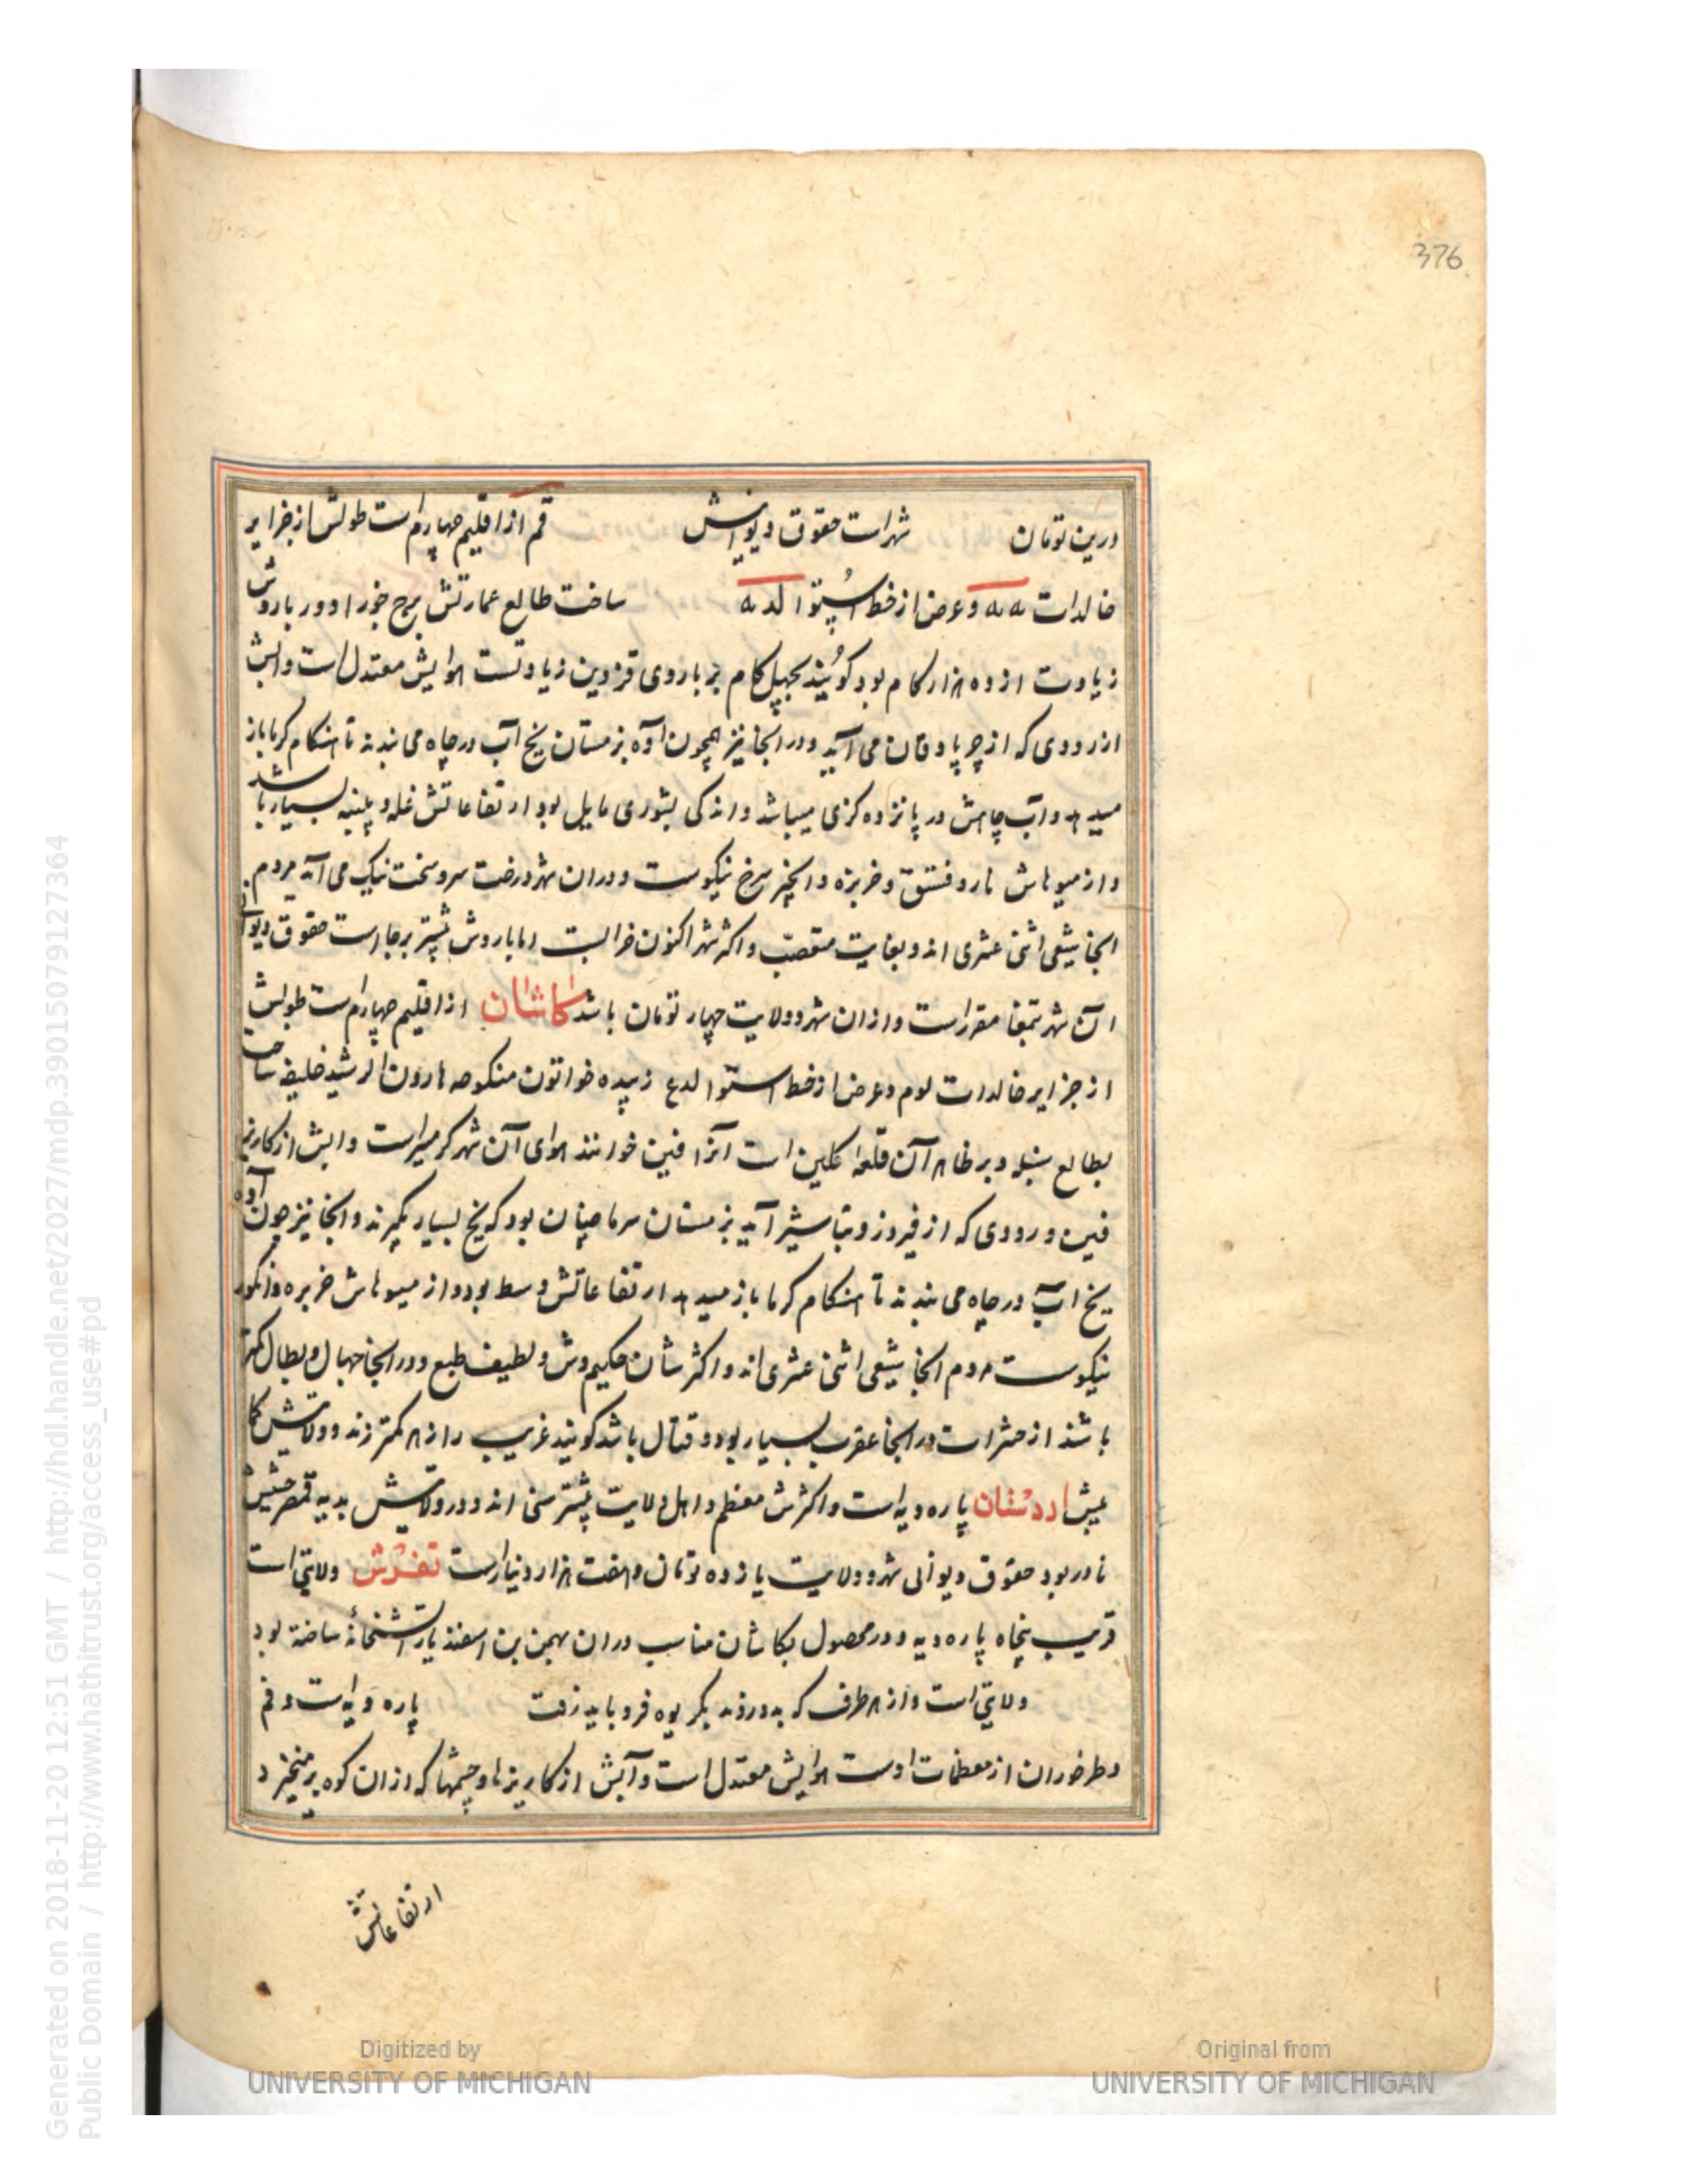 376
درین تومان شهراست حقوق دیوانیش قم از اقلیم چهارم است طولش از جزایر
خالدات ىه ىه وعرض از خط استوا لد ىه ساخت طالع عمارتش برج جوزا و دور باروش
زیادت از ده هزار کام بود کویند بچهل کام بر باروی قزوین زیادتست هوایش معتدل است و ابش
از رودی که از جرپادقان می آید و در انجا نیز همچون آوه بزمستان یخ آب در چاه می بندند تا هنکام کرما باز
میدهد و آب چاهش در پانزده کزی میباشد و اندکی بشوری مایل بود ارتفاعاتش غله و پنبه بسیار باشد
و از میوهاش نار و فستق و خربزه و انجیر سرخ نیکوست و دران شهر درخت سرو سخت نیک می آید مردم
انجا شیعی اثنی عشری اند و بغایت متعصب و اکثر شهر اکنون خرابست اما باروش بیشتر برجا است حقوق دیوانی
آن شهر تمغا مقرر است و ازان شهر و ولایت چهار تومان باشد کاشان از اقلیم چهارم است طولش
از جزایر خالدات لوم وعرض از خط استوا لدع زبیده خواتون منکوحه هارون الرشید خلیفه ساخت
بطالع سنبله و بر ظاهر آن قلعه کلین است آنرا فین خوانند هوای آن شهر کرمسیر است و ابش از کاریز
فین و رودی که از فیروز و نیاسر آید بزمستان سرما چنان بود که یخ بسیار بگیرند و انجا نیز چون آوه
یخ اب در چاه می بندند تا هنکام کرما باز میدهد ارتفاعاتش وسط بود و از میوهاش خربزه و انکور
نیکوست مردم انجا شیعی اثنی عشری اند و اکثرشان حکیم وش و لطیف طبع و در انجا جهال و بطال کمتر
باشند از حشرات در انجا عقرب بسیار بود و قتال باشد کویند غریب را زهر کمتر زند و ولایتش کما
بیش اردستان پاره دیه است و اکثرش معظم و اهل ولایت بیشتر سنی اند و در ولایتش بدیه قمصر حشیش
نادر بود حقوق دیوانی شهر و ولایت یازده تومان و هفت هزار دینار است تفرش ولایتی است
قریب پنجاه پاره دیه و در محصول بکاشان مناسب دران بهمن بن اسفندیار اتشخانه ساخته بود
ولایتی است و از هر طرف که بدو روند بکریوه فرو باید رفت پاره دیه است و فم
و طرخوران از معظمات اوست هوایش معتدل است و آبش از کاریزها و چشمها که ازان کوه برمیخیزد
ارتفاعاتش
Generated on 2018-11-20 12:51 GMT / http://hdl.handle.net/2027/mdp.39015079127364
Public Domain / http://www.hathitrust.org/access_use#pd
Digitized by
UNIVERSITY OF MICHIGAN
Original from
UNIVERSITY OF MICHIGAN